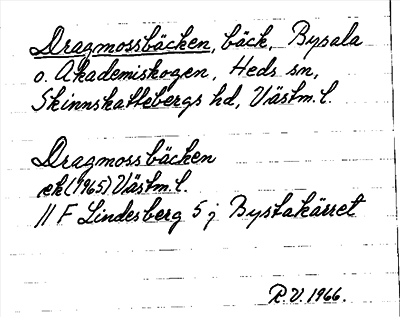 Dragmossbäcken, bäck, Bysala
o. Akademiskogen, Heds sn,
Skinnskattebergs hd, Västm. l.
Dragmossbäcken
ek (1965) Västm. l.
11 F Lindesberg 5 j Bystakärret
R.V. 1966.